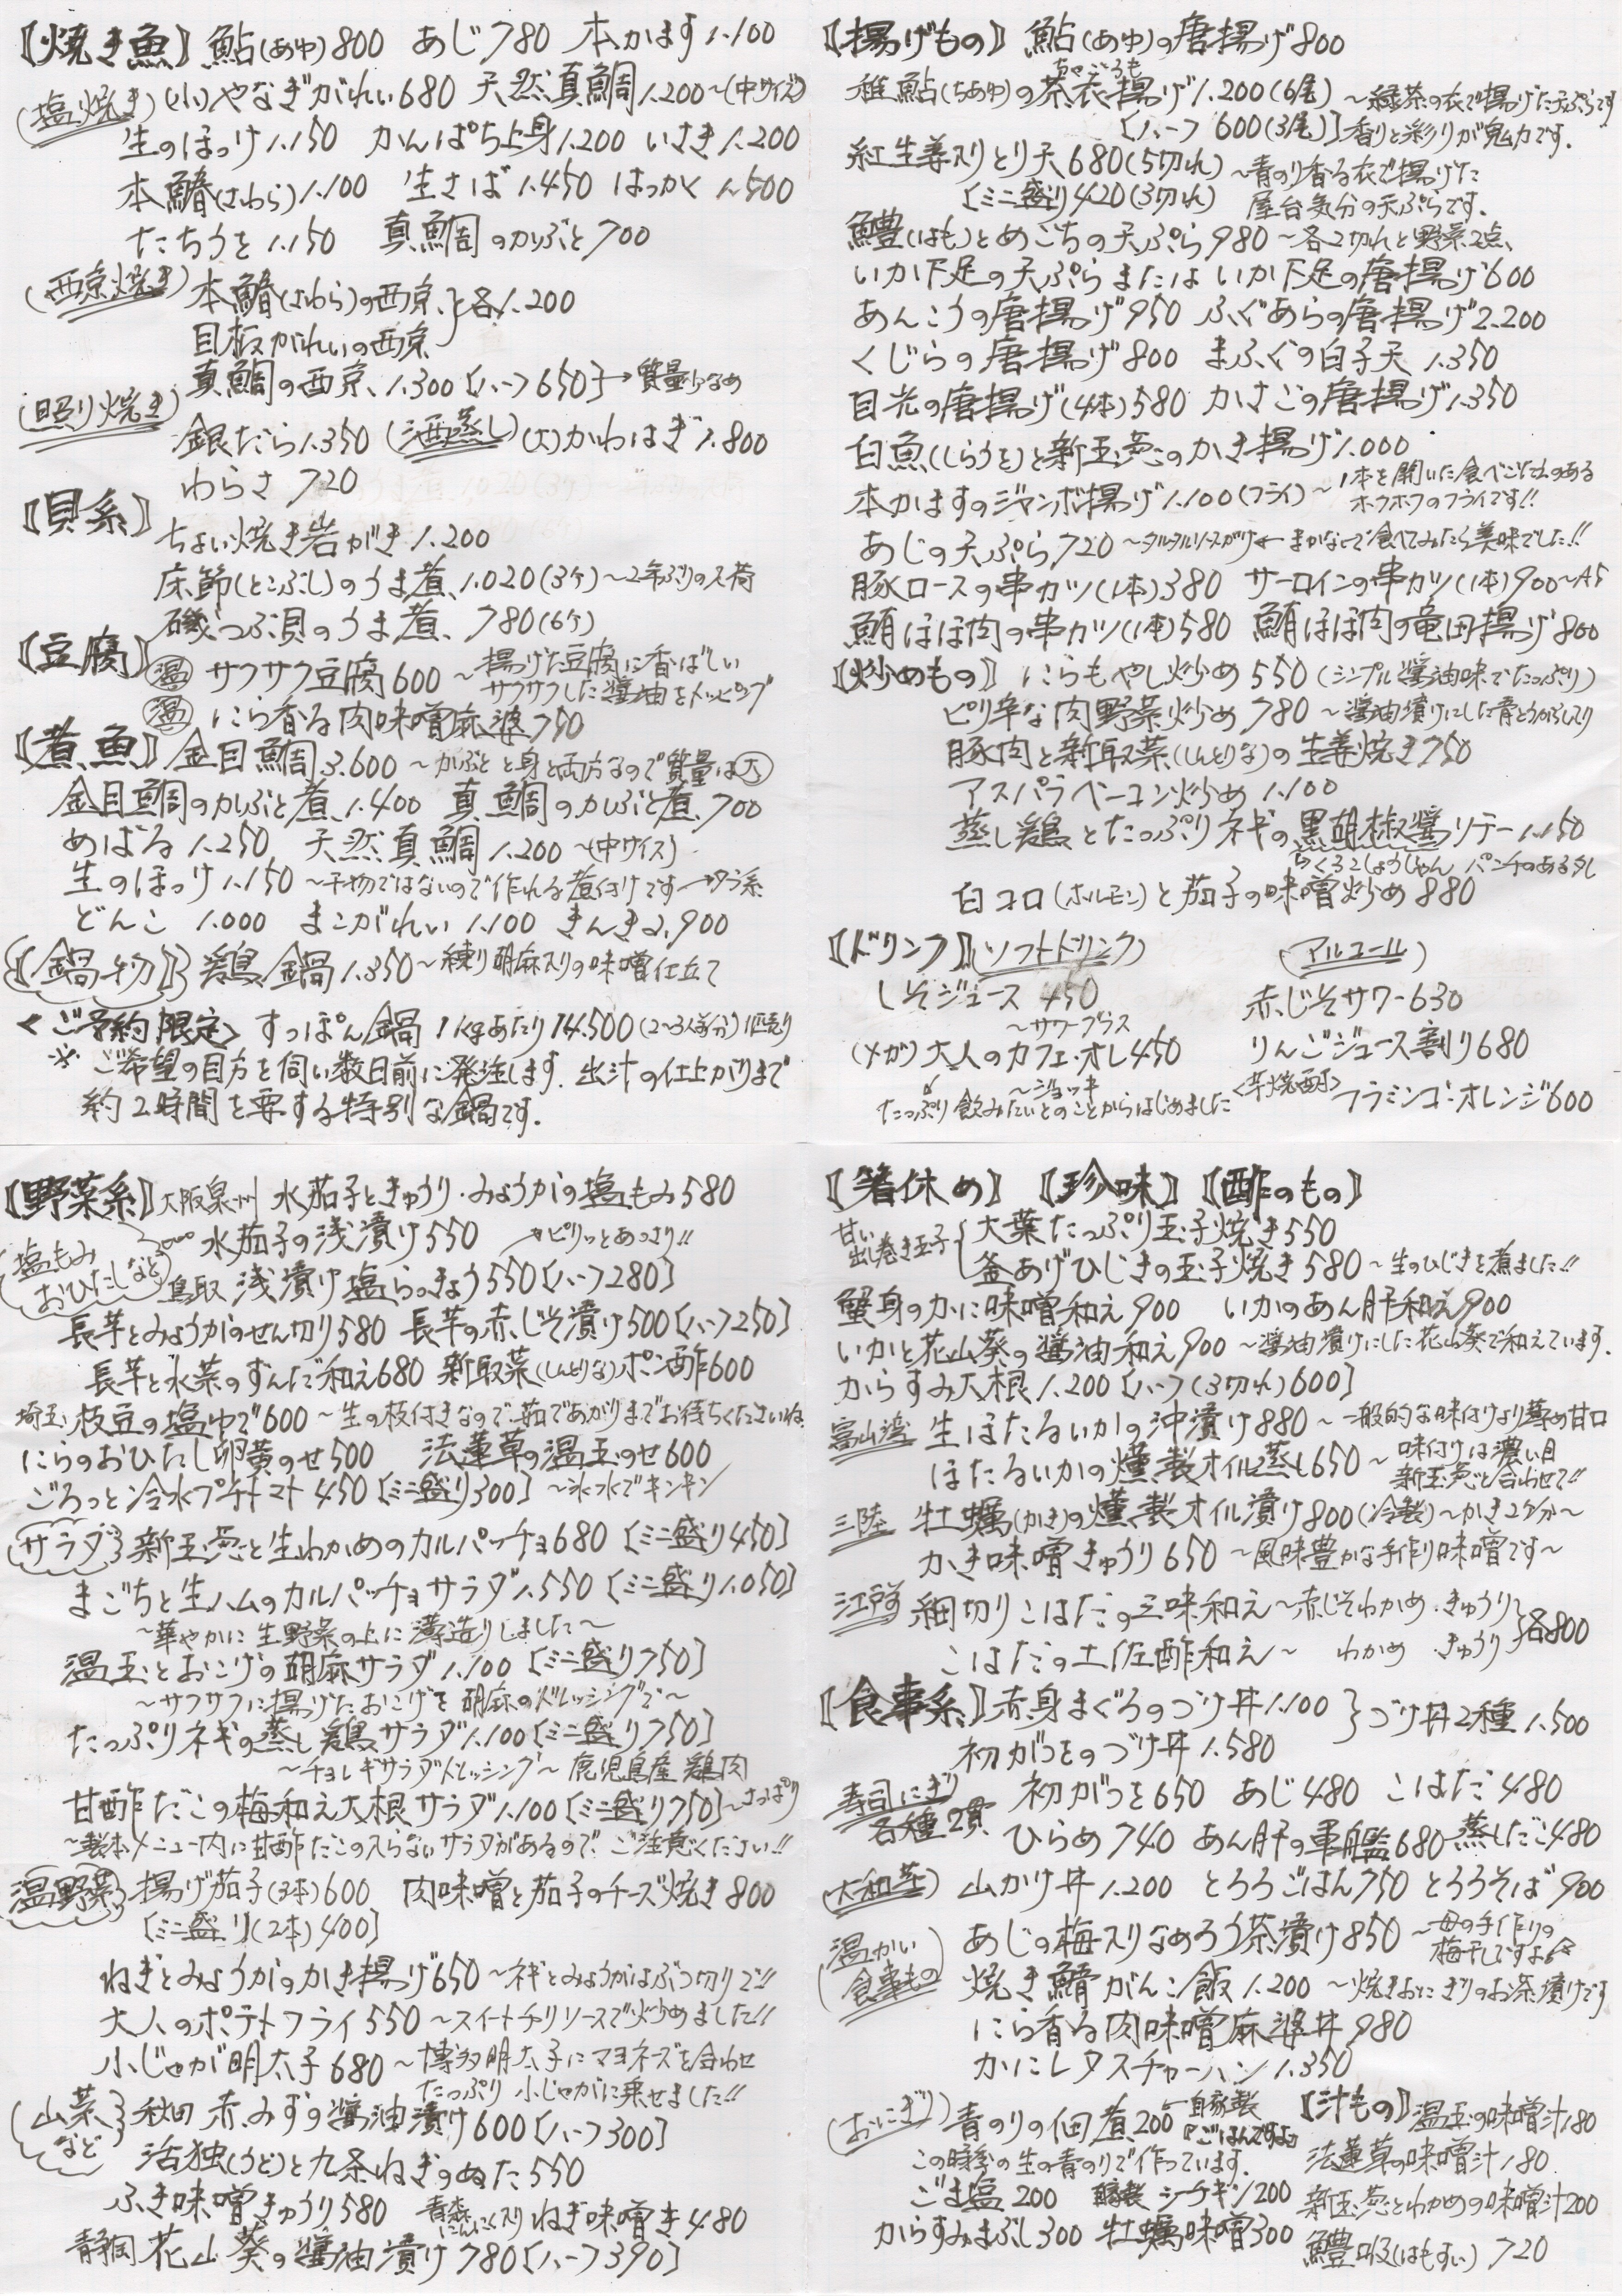 【焼き魚】 鮎(あゆ)800 あじ780 本かます1.100
(塩焼き) (小)やなぎがれい680 天然真鯛1.200~(中サイズ)
生のほっけ1.150 かんぱち上身1.200 いさき1.200
本鰆(さわら)1.100 生さば1.450 はっかく1.500
たちうを1.150 真鯛のかぶと700
(西京焼き) 本鰆(さわら)の西京 }各1.200
目板がれいの西京
真鯛の西京 1.300 [ハーフ650]→質量少なめ
(照り焼き)
銀だら1.350 (酒蒸し)(大)かわはぎ1.800
わらさ720
【貝系】
ちょい焼き岩がき1.200
床節(とこぶし)のうま煮 1.020(3ケ)~2年ぶりの入荷
磯つぶ貝のうま煮 780(6ケ)
【豆腐】
温 サクサク豆腐600~揚げた豆腐に香ばしい
サクサクした醤油をトッピング
温 にら香る肉味噌麻婆750
【煮魚】 金目鯛3.600~かぶとと身と両方なので質量は大
金目鯛のかぶと煮1.400 真鯛のかぶと煮700
めばる1.250 天然真鯛1.200~(中サイズ)
生のほっけ1.150~干物ではないので作れる煮付けです→タラ系
どんこ 1.000 まこがれい1.100 きんき2.900
【鍋物】 鶏鍋1.350~練り胡麻入りの味噌仕立て
<ご予約限定> すっぽん鍋 1kgあたり14.500(2~3人前分)1匹売り
※ ご希望の目方を伺い数日前に発注します. 出汁の仕上がりまで
約2時間を要する特別な鍋です.
【揚げもの】 鮎(あゆ)の唐揚げ800
ちゃごろも
稚鮎(ちあゆ)の茶衣揚げ1.200(6尾) ~緑茶の衣で揚げた天ぷらです
[ハーフ 600(3尾)] 香りと彩りが魅力です.
紅生姜入りとり天680(5切れ) ~青のり香る衣で揚げた
[ミニ盛り420(3切れ) 屋台気分の天ぷらです.
鱧(はも)とめごちの天ぷら980~各2切れと野菜2点、
いか下足の天ぷら または いか下足の唐揚げ600
あんこうの唐揚げ950 ふぐあらの唐揚げ2.200
くじらの唐揚げ800 まふぐの白子天 1.350
目光の唐揚げ(4本)580 かさごの唐揚げ1.350
白魚(しらうを)と新玉葱のかき揚げ1.000
本かますのジャンボ揚げ1.100(フライ)~1本を開いた食べごたえのある
ホクホクのフライです!!
あじの天ぷら720~タルタルソースがけ←まかないで食べてみたら美味でした!!
豚ロースの串カツ(1本)380 サーロインの串カツ(1本)900~A5
鮪ほほ肉の串カツ(1本)580 鮪ほほ肉の竜田揚げ800
【炒めもの】 にらもやし炒め550(シンプル醤油味でたっぷり)
ピリ辛な肉野菜炒め780~醤油漬けにした青とうがらし入り
豚肉と新取菜(しんとりな)の生姜焼き750
アスパラベーコン炒め1.100
蒸し鶏とたっぷりネギの黒胡椒醤ソテー1.150
くろこしょうじゃん パンチのあるタレ
白コロ(ホルモン)と茄子の味噌炒め880
【ドリンク】(ソフトドリンク) (アルコール)
しそジュース 450 赤じそサワー630
~サワーグラス
(メガ)大人のカフェ・オレ450 りんごジュース割り680
~ジョッキ <芋焼酎>フラミンゴ・オレンジ600
たっぷり飲みたいとのことからはじめました
【野菜系】 大阪泉州 水茄子ときゅうり・みょうがの塩もみ580
水茄子の浅漬け550 →ピリッとあっさり!!
(塩もみ おひたしなど) 鳥取 浅漬け塩らっきょう550[ハーフ280]
長芋とみょうがのせん切り580 長芋の赤じそ漬け500[ハーフ250]
長芋と水菜のずんだ和え680 新取菜(しんとりな)ポン酢600
埼玉 枝豆の塩ゆで600~生の枝付きなので茹であがりまでお待ちくださいね.
にらのおひたし卵黄のせ500 法蓮草の温玉のせ600
ごろっと冷水プチトマト450[ミニ盛り300]~氷水でキンキン
サラダ 新玉葱と生わかめのカルパッチョ680[ミニ盛り450]
まごちと生ハムのカルパッチョサラダ1.550[ミニ盛り1.050]
~華やかに生野菜の上に薄造りしました~
温玉とおこげの胡麻サラダ1.100[ミニ盛り750]
~サクサクに揚げたおこげを胡麻のドレッシングで~
たっぷりネギの蒸し鶏サラダ1.100[ミニ盛り750]
~チョレギサラダドレッシング~鹿児島産鶏肉
甘酢だこの梅和え大根サラダ1.100[ミニ盛り750]~さっぱり
~製本メニュー内に甘酢だこの入らないサラダがあるので、ご注意ください!!
温野菜 揚げ茄子(3本)600 肉味噌と茄子のチーズ焼き800
[ミニ盛り(2本)400]
ねぎとみょうがのかき揚げ650~ネギとみょうがはぶつ切りで!!
大人のポテトフライ550~スイートチリソースで炒めました!!
小じゃが明太子680~博多明太子にマヨネーズを合わせ
たっぷり小じゃがに乗せました!!
(山菜など) 秋田 赤みずの醤油漬け600[ハーフ300]
活独(うど)と九条ねぎのぬた550
ふき味噌きゅうり580 青森にんにく入りねぎ味噌き480
静岡 花山葵の醤油漬け780[ハーフ390]
【箸休め】 【珍味】 【酢のもの】
甘い出し巻き玉子 { 大葉たっぷり玉子焼き550
釜あげひじきの玉子焼き580~生のひじきを煮ました!!
蟹身のかに味噌和え900 いかのあん肝和え900
いかと花山葵の醤油和え900~醤油漬けにした花山葵で和えています.
からすみ大根1.200[ハーフ(3切れ)600]
富山湾 生ほたるいかの沖漬け880~一般的な味付けより薄め甘口
ほたるいかの燻製オイル蒸し650~味付けは濃い目
新玉葱と合わせて!!
三陸 牡蠣(かき)の燻製オイル漬け800(冷製)~かき2ケ分~
かき味噌きゅうり650~風味豊かな手作り味噌です~
江戸前 細切りこはだの三味和え~赤じそわかめ・きゅうり }各800
こはだの土佐酢和え~ わかめ・きゅうり
【食事系】 赤身まぐろのづけ丼1.100 }づけ丼2種1.500
初がつをのづけ丼1.580
寿司にぎり 各種2貫 初がつを650 あじ480 こはだ480
ひらめ740 あん肝の軍艦680 蒸しだこ480
(大和芋) 山かけ丼1.200 とろろごはん750 とろろそば900
(温かい食事もの) あじの梅入りなめろう茶漬け850~母の手作りの
梅干しですよ
焼き鯖がんこ飯1.200~焼きおにぎりのお茶漬けです
にら香る肉味噌麻婆丼980
かにレタスチャーハン1.350
(おにぎり) 青のりの佃煮200←自家製『ごはんですよ』
この時季の生の青のりで作っています.
ごま塩200 自家製 シーチキン200
からすみまぶし300 牡蠣味噌300
【汁もの】 温玉の味噌汁180
法蓮草の味噌汁180
新玉葱とわかめの味噌汁200
鱧吸(はもすい) 720